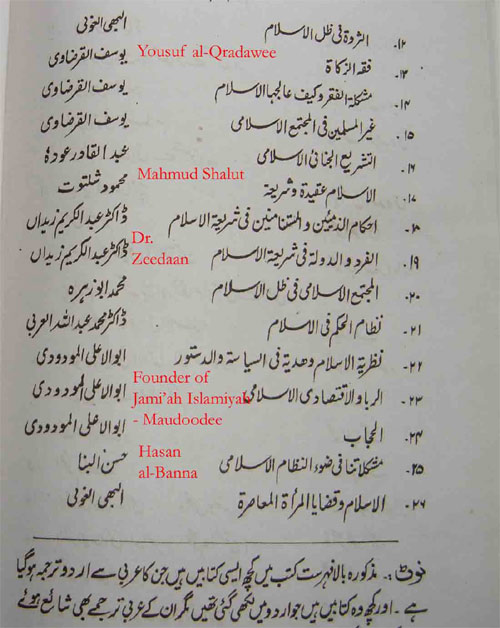 ۱۲- الثروة فی ظل الاسلام البهی الخولی
Yousuf al-Qradawee
۱۳- فقه الزکاة یوسف القرضاوی
۱۴- مشکلة الفقر وکیف عالجها الاسلام یوسف القرضاوی
۱۵- غیر المسلمین فی المجتمع الاسلامی یوسف القرضاوی
۱۶- التشریع الجنائی الاسلامی عبد القادر عودة
Mahmud Shalut
۱۷- الاسلام عقیدة وشریعة محمود شلتوت
۱۸- احکام الذمیّین والمستامنین فی شریعة الاسلام ڈاکٹر عبد الکریم زیدان
Dr.
Zeedaan
۱۹- الفرد والدولة فی شریعة الاسلام ڈاکٹر عبد الکریم زیدان
۲۰- المجتمع الاسلامی فی ظل الاسلام محمد ابو زہرہ
۲۱- نظام الحکم فی الاسلام ڈاکٹر محمد عبد اللہ العربی
۲۲- نظریة الاسلام وهدیة فی السیاسة والدستور ابو الاعلی المودودی
Founder of
Jami'ah Islamiyah
- Maudoodee
۲۳- الربا والاقتصادی الاسلامی ابو الاعلی المودودی
۲۴- الحجاب ابو الاعلی المودودی
Hasan
al-Banna
۲۵- مشکلاتنا فی ضوء النظام الاسلامی حسن البنا
۲۶- الاسلام وقضایا المرأة المعاصرة البهی الخولی
نوٹ:- مذکورہ بالا فہرست کتب میں کچھ ایسی کتابیں ہیں جن کا عربی سے اردو ترجمہ ہوگیا
ہے۔ اور کچھ وہ کتابیں ہیں جو اردو میں لکھی گئی تھیں مگر ان کے عربی ترجمے بھی شائع ہوئے